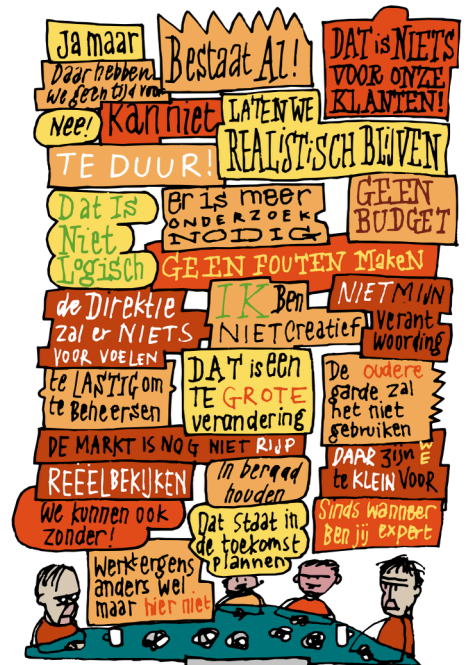 Ja maar
Bestaat Al!
DAT is NIETS
VOOR ONZE
KLANTEN!
Daar hebben
we geen tijd voor
Nee!
Kan niet
LATEN WE
REALiSTiSCH BLiJVEN
TE DUUR!
Dat Is
Niet
Logisch
er is meer
ONDERZOEK
NODIG
GEEN
BUDGET
GEEN FOUTEN MakeN
de Direktie
zal er NIETS
VOOR VOELEN
IK Ben
NIET Creatief
NIET MIJN
Verant
woording
te LASTIG om
te Beheersen
DAT is een
TE GROTE
verandering
De oudere
garde zal
het niet
gebruiken
DE MARKT IS NOG NIET RIJP
DAAR zijn WE
te KLEIN VOOR
REËEL BEKIJKEN
In beraad
houden
We kunnen ook
zonder!
Dat staat in
de toekomst
plannen
Sinds wanneer
Ben jij expert
Werkt ergens
anders wel
maar hier niet